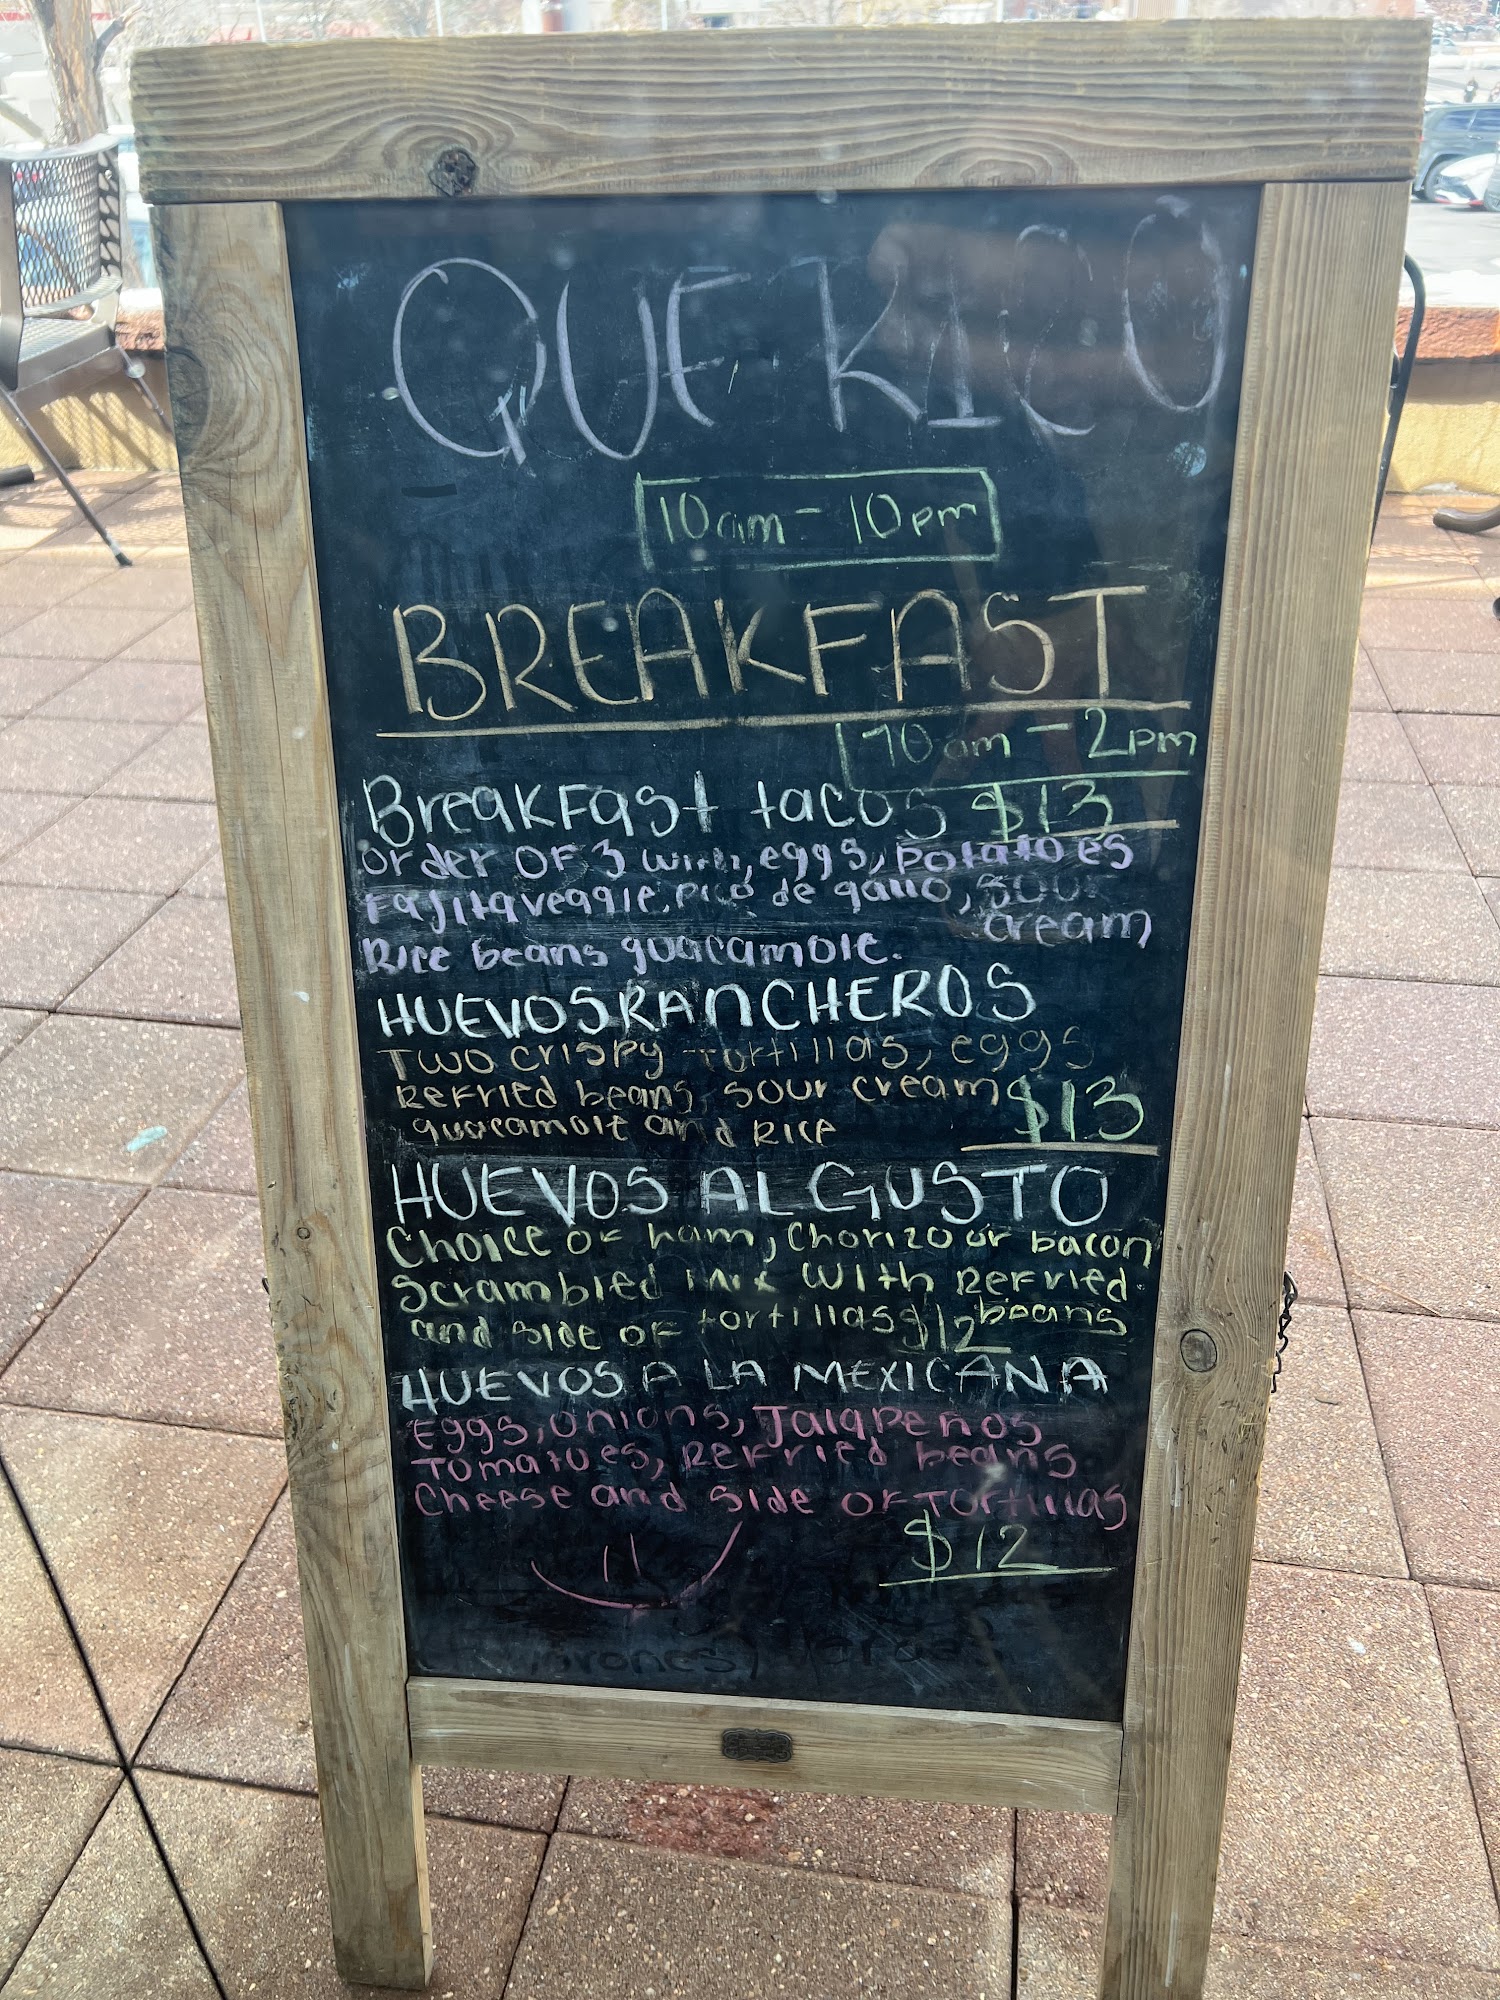 QUE RICO
10am - 10pm
BREAKFAST
10am - 2pm
BreakFast tacos $13
Order OF 3 with, eggs, potatoes
Fajita veggie, pico de gallo, sour
cream
Rice beans guacamole.
HUEVOS RANCHEROS
TWO crispy tortillas, eggs
ReFried beans, sour cream $13
guacamole and Rice
HUEVOS AL GUSTO
Choice OF ham, Chorizo or bacon
Scrambled mix with ReFried
and side OF tortillas $12 beans
HUEVOS A LA MEXICANA
Eggs, onions, Jalapeños
Tomatoes, ReFried beans
Cheese and side OF Tortillas
$12